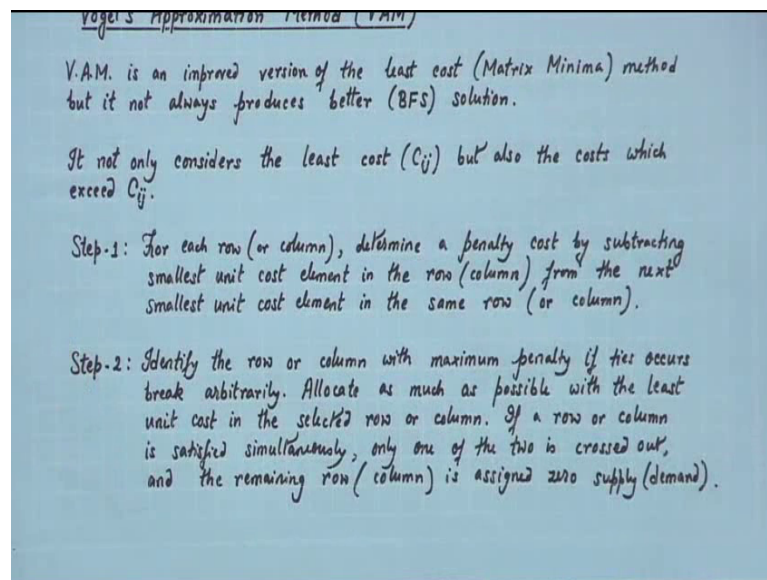 Vogel's Approximation Method (VAM)
V.A.M. is an improved version of the least cost (Matrix Minima) method
but it not always produces better (BFS) solution.
It not only considers the least cost (Cij) but also the costs which
exceed Cij.
Step-1: For each row (or column), determine a penalty cost by subtracting
smallest unit cost element in the row (column) from the next
smallest unit cost element in the same row (or column).
Step-2: Identify the row or column with maximum penalty if ties occurs
break arbitrarily. Allocate as much as possible with the least
unit cost in the selected row or column. If a row or column
is satisfied simultaneously, only one of the two is crossed out,
and the remaining row (column) is assigned zero supply (demand).